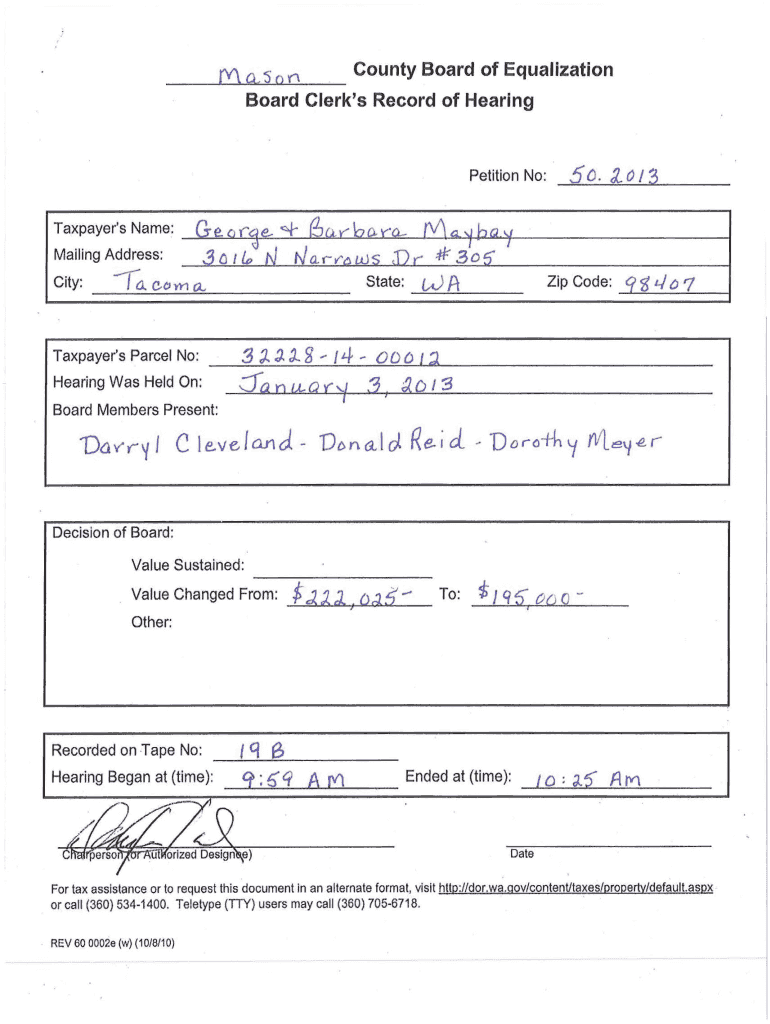 Mason County Board of Equalization
Board Clerk's Record of Hearing
Petition No: 50.2013
Taxpayer's Name: George + Barbara Maybay
Mailing Address: 3016 N Narrows Dr #305
City: Tacoma State: WA Zip Code: 98407
Taxpayer's Parcel No: 32228-14-00012
Hearing Was Held On: January 3, 2013
Board Members Present:
Darryl Cleveland - Donald Reid - Dorothy Meyer
Decision of Board:
Value Sustained:
Value Changed From: $222,025- To: $195,000-
Other:
Recorded on Tape No: 19 B
Hearing Began at (time): 9:59 AM Ended at (time): 10:25 Am
Chairperson (or Authorized Designee) Date
For tax assistance or to request this document in an alternate format, visit http://dor.wa.gov/content/taxes/property/default.aspx
or call (360) 534-1400. Teletype (TTY) users may call (360) 705-6718.
REV 60 0002e (w) (10/8/10)